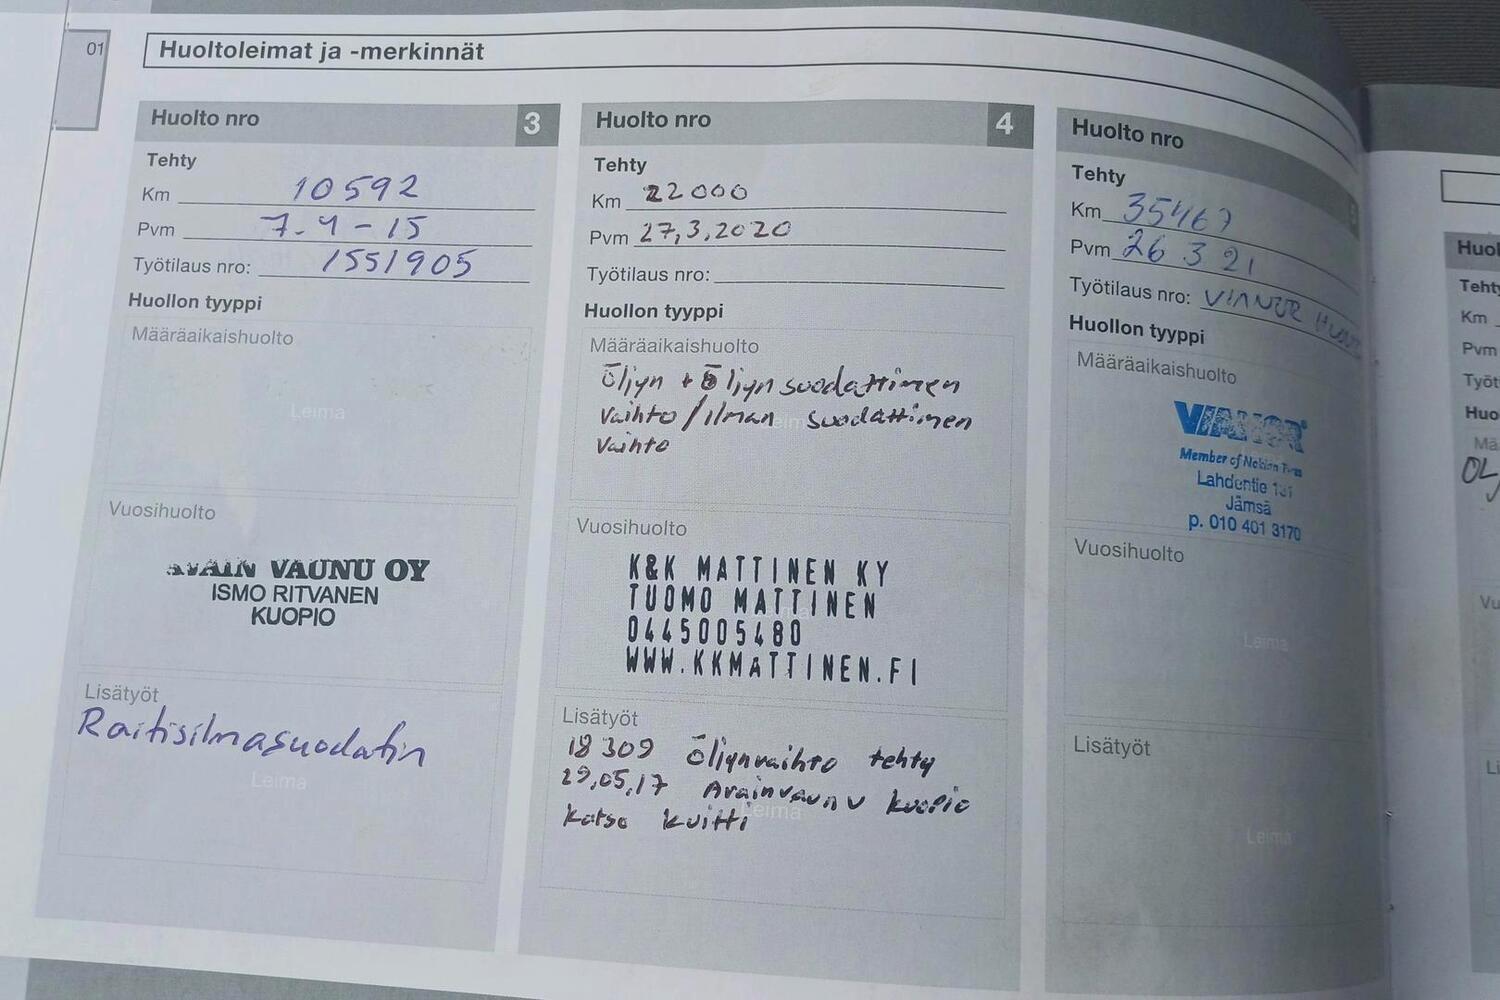 01
Huoltoleimat ja -merkinnät
Huolto nro 3
Tehty
Km 10592
Pvm 7.4-15
Työtilaus nro: 1551905
Huollon tyyppi
Määräaikaishuolto
Leima
Vuosihuolto
AVAIN VAUNU OY
ISMO RITVANEN
KUOPIO
Lisätyöt
Raitisilmasuodatin
Leima
Huolto nro 4
Tehty
Km 22000
Pvm 27,3,2020
Työtilaus nro:
Huollon tyyppi
Määräaikaishuolto
Öljyn + Öljynsuodattimen
vaihto/ilman suodattimen
vaihto
Vuosihuolto
K&K MATTINEN KY
TUOMO MATTINEN
0445005480
WWW.KKMATTINEN.FI
Lisätyöt
18309 Öljynvaihto tehty
29,05,17 Avainvaunu kuopio
katso kuitti
Leima
Huolto nro
Tehty
Km 35467
Pvm 26 3 21
Työtilaus nro: VIANOR
Huollon tyyppi
Määräaikaishuolto
VIANOR
Member of Nokian Tyres
Lahdentie
Jämsä
p. 010 401 3170
Vuosihuolto
Leima
Lisätyöt
Leima
Km
Pvm